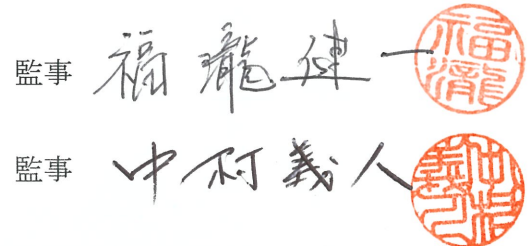 監事 福瀧健一 福瀧
監事 中村義人 中村義人